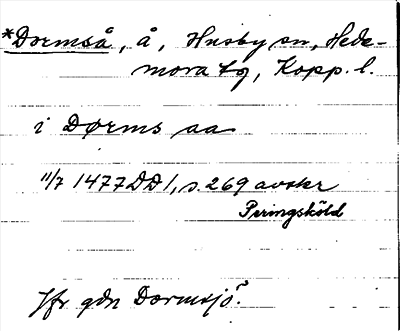 *Dormså, å, Husby sn, Hede-
mora tg, Kopp. l.
i Dørms aa
11/7 1477 DD 1, s. 269 avskr
Peringsköld
Jfr gdn Dormsjö?